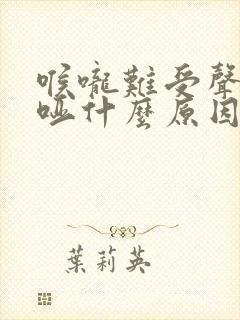 喉嚨難受聲
啞什麼原因
葉莉英